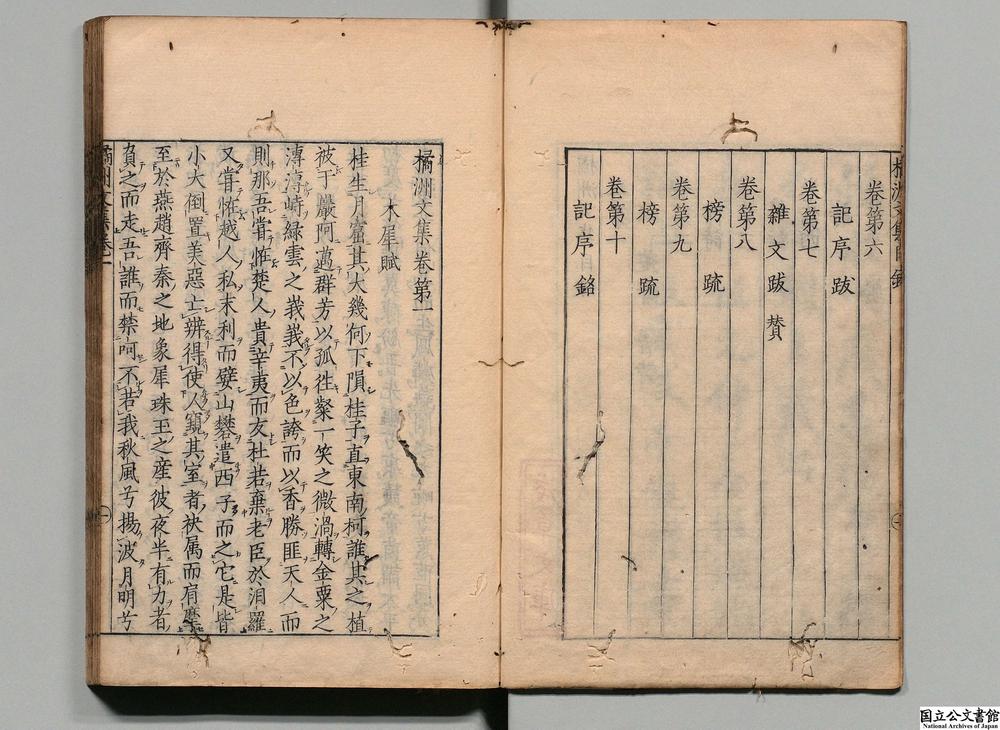 卷第六
記序跋
卷第七
雜文跋賛
卷第八
榜疏
卷第九
榜疏
卷第十
記序銘
橘洲文集卷第一
木犀賦
桂生月窟其大幾何下隕桂子直東南柯誰其之植
被于巖阿邁群芳以孤徃粲一笑之微渦轉金粟之
溥溥峙緑雲之峩峩不以色誇而以香勝匪天人而
則那吾甞恠楚人貴辛夷而友杜若棄老臣於汨羅
又甞恠越人私末利而嬖山礬遣西子而之它是皆
小大倒置美惡亡辨得使人窺其室者袂属而肩摩
至於燕趙齊秦之地象犀珠玉之産彼夜半有力者
負之而走吾誰而禁呵不若我秋風兮揚波月明兮
橘洲文集卷一
國立公文書館
National Archives of Japan